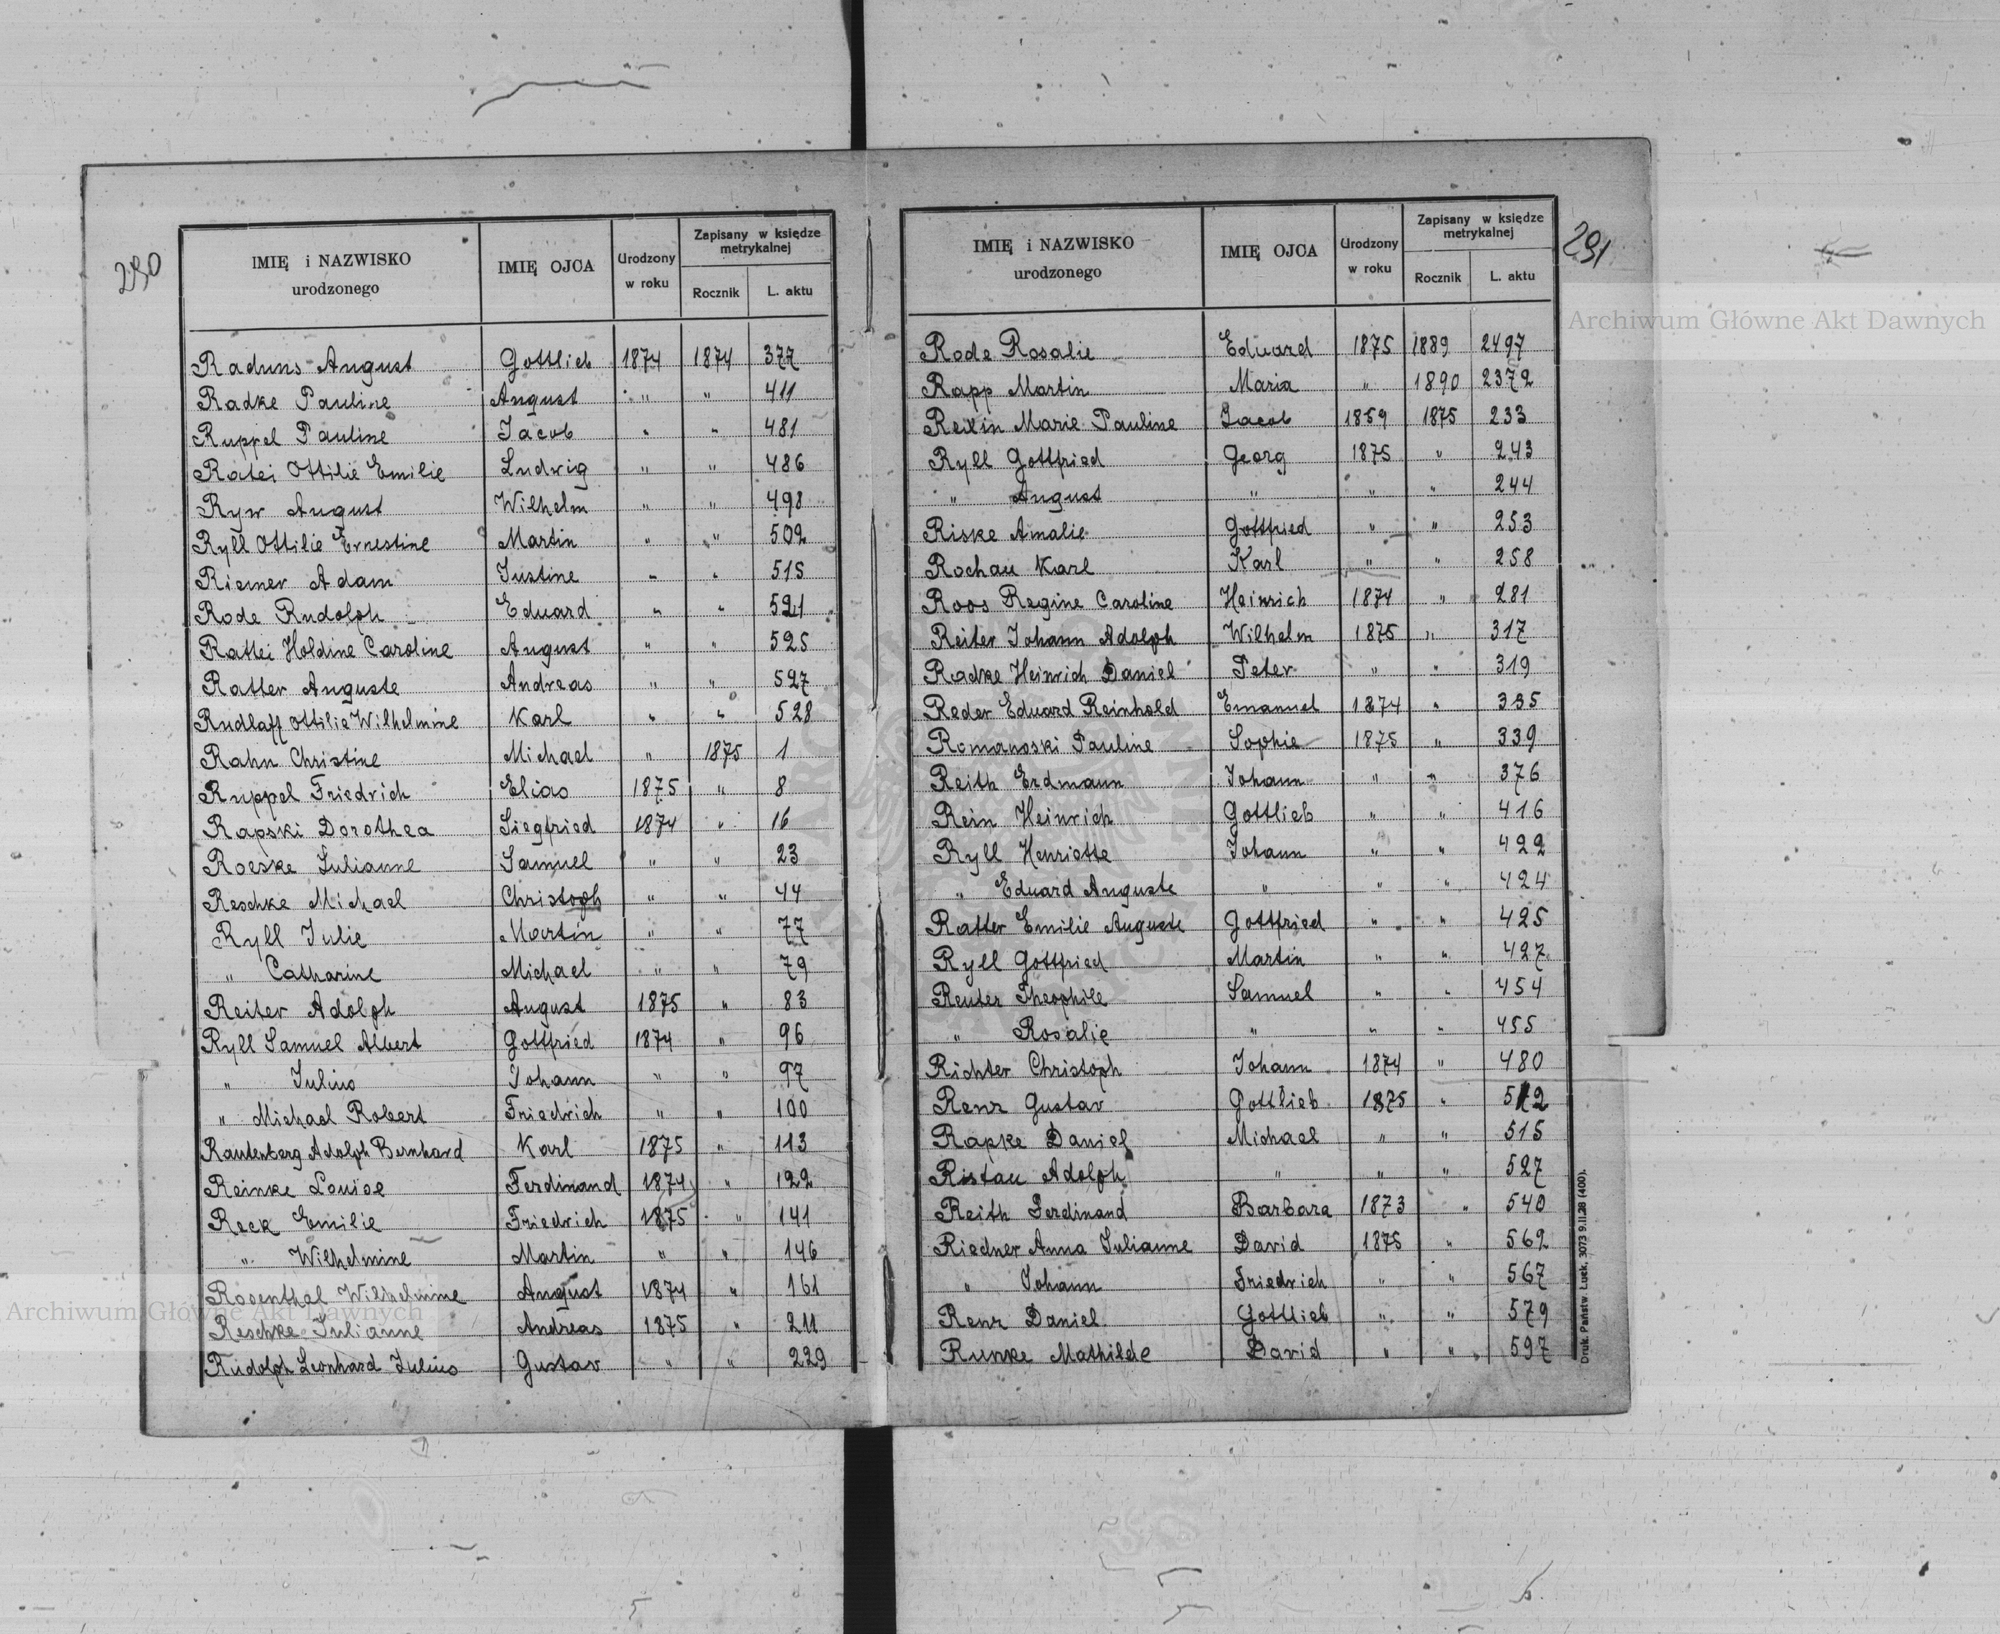 290
IMIĘ i NAZWISKO urodzonego | IMIĘ OJCA | Urodzony w roku | Zapisany w księdze metrykalnej | Rocznik | L. aktu
Raduns August | Gottlieb | 1874 | 1874 | 377
Radke Pauline | August | " | " | 411
Ruppel Pauline | Jacob | " | " | 481
Ratei Ottilie Emilie | Ludwig | " | " | 486
Ryw August | Wilhelm | " | " | 498
Ryll Ottilie Ernestine | Martin | " | " | 502
Riemer Adam | Justine | " | " | 515
Rode Rudolph | Eduard | " | " | 521
Rattei Holdine Caroline | August | " | " | 525
Ratter Auguste | Andreas | " | " | 527
Rudlaff Ottilie Wilhelmine | Karl | " | " | 528
Rahn Christine | Michael | " | 1875 | 1
Ruppel Friedrich | Elias | 1875 | " | 8
Rapski Dorothea | Siegfried | 1874 | " | 16
Roeske Julianne | Samuel | " | " | 23
Reschke Michael | Christoph | " | " | 44
Ryll Julie | Martin | " | " | 77
" Catharine | Michael | " | " | 79
Reiter Adolph | August | 1875 | " | 83
Ryll Samuel Albert | Gottfried | 1874 | " | 96
" Julius | Johann | " | " | 97
" Michael Robert | Friedrich | " | " | 100
Rautenberg Adolph Bernhard | Karl | 1875 | " | 113
Reinke Louise | Ferdinand | 1874 | " | 122
Reck Emilie | Friedrich | 1875 | " | 141
" Wilhelmine | Martin | " | " | 146
Rosenthal Wilhelmine | August | 1874 | " | 161
Reschke Julianne | Andreas | 1875 | " | 211
Rudolph Leonhard Julius | Gustav | " | " | 229
291
IMIĘ i NAZWISKO urodzonego | IMIĘ OJCA | Urodzony w roku | Zapisany w księdze metrykalnej | Rocznik | L. aktu
Rode Rosalie | Eduard | 1875 | 1889 | 2497
Rapp Martin | Maria | " | 1890 | 2372
Rexin Marie Pauline | Jacob | 1859 | 1875 | 233
Ryll Gottfried | Georg | 1875 | " | 243
" August | " | " | " | 244
Riske Amalie | Gottfried | " | " | 253
Rochau Karl | Karl | " | " | 258
Roos Regine Caroline | Heinrich | 1874 | " | 281
Reiter Johann Adolph | Wilhelm | 1875 | " | 317
Radke Heinrich Daniel | Peter | " | " | 319
Reder Eduard Reinhold | Emanuel | 1874 | " | 335
Romanoski Pauline | Sophie | 1875 | " | 339
Reith Erdmann | Johann | " | " | 376
Rein Heinrich | Gottlieb | " | " | 416
Ryll Henriette | Johann | " | " | 422
" Eduard Auguste | " | " | " | 424
Ratter Emilie Auguste | Gottfried | " | " | 425
Ryll Gottfried | Martin | " | " | 427
Reuter Theophile | Samuel | " | " | 454
" Rosalie | " | " | " | 455
Richter Christoph | Johann | 1874 | " | 480
Renz Gustav | Gottlieb | 1875 | " | 512
Rapke Daniel | Michael | " | " | 515
Ristau Adolph | " | " | " | 527
Reith Ferdinand | Barbara | 1873 | " | 540
Riedner Anna Julianne | David | 1875 | " | 562
" Johann | Friedrich | " | " | 567
Renz Daniel | Gottlieb | " | " | 579
Runke Mathilde | David | " | " | 597
Druk. Państw. Łuck. 3073 9.II.28 (400).
Archiwum Główne Akt Dawnych
Archiwum Główne Akt Dawnych